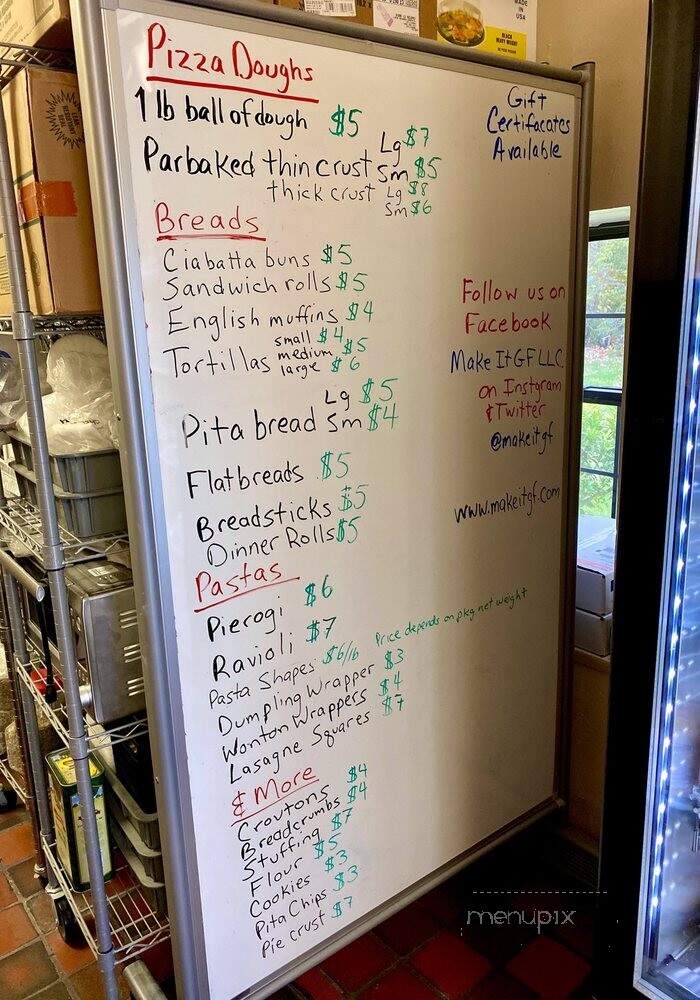 Pizza Doughs
1 lb ball of dough $5
Parbaked thin crust Lg $7
Sm $5
thick crust Lg $8
Sm $6
Breads
Ciabatta buns $5
Sandwich rolls $5
English muffins $4
Tortillas small $4
medium $5
large $6
Pita bread Lg $5
Sm $4
Flatbreads $5
Breadsticks $5
Dinner Rolls $5
Pastas
Pierogi $6
Ravioli $7
Pasta Shapes $6/lb Price depends on pkg net weight
Dumpling Wrapper $3
Wonton Wrappers $4
Lasagne Squares $7
& More
Croutons $4
Breadcrumbs $4
Stuffing $7
Flour $5
Cookies $3
Pita Chips $3
Pie crust $7
Gift
Certifacates
Available
Follow us on
Facebook
Make It GF LLC
on Instgram
& Twitter
@makeitgf
www.makeitgf.com
MADE
IN
USA
menupix